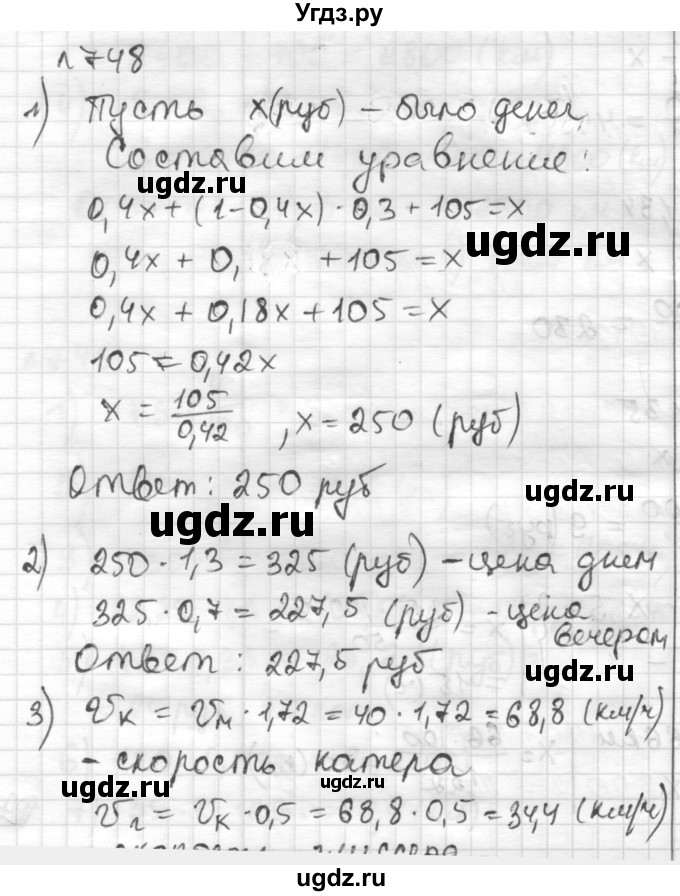 Угдз.ру
№748
1) Пусть x(руб) – было денег
Составим уравнение:
ugdz.ru
0,4x + (1-0,4x)·0,3 + 105 = x
ugdz.ru
0,4x + 0, + 105 = x
0,4x + 0,18x + 105 = x
105 = 0,42x
x = 105/0,42 , x = 250 (руб)
Ответ: 250 руб
ugdz.ru
ugdz.ru
2) 250 · 1,3 = 325 (руб) – цена днем
325 · 0,7 = 227,5 (руб) – цена вечером
Ответ: 227,5 руб
ugdz.ru
3) Vк = Vм · 1,72 = 40 · 1,72 = 68,8 (км/ч)
– скорость катера
ugdz.ru
ugdz.ru
Vл = Vк · 0,5 = 68,8 · 0,5 = 34,4 (км/ч)
ugdz.ru
ugdz.ru